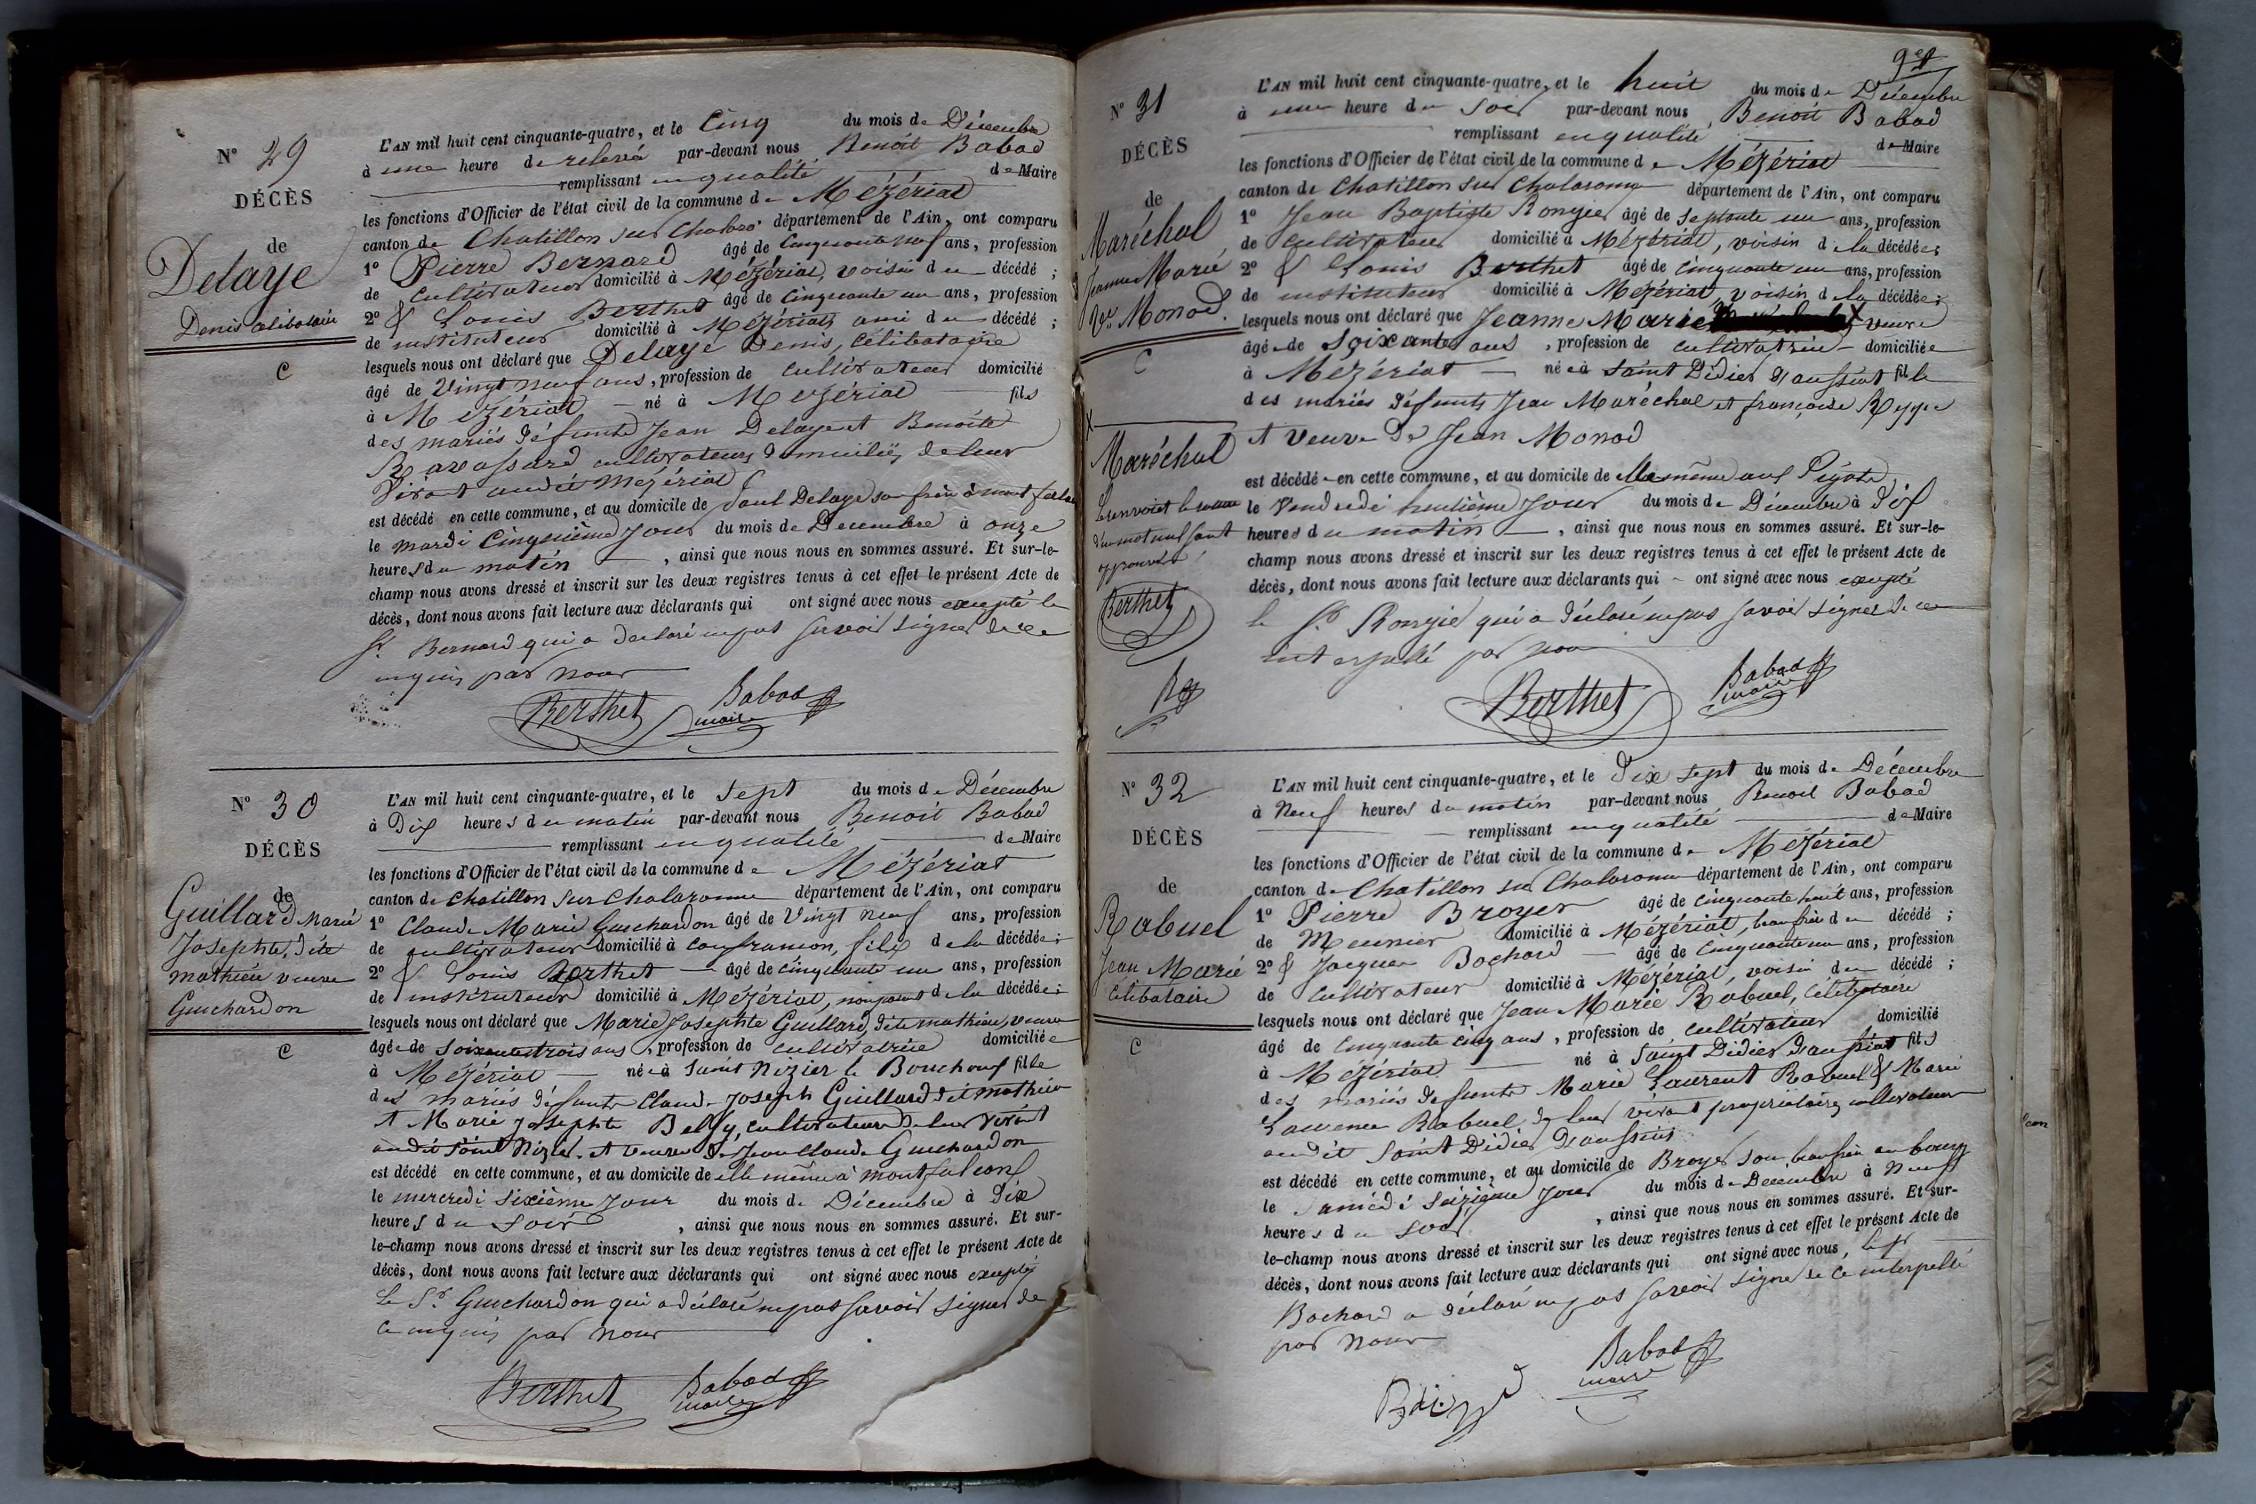 N° 29
DÉCÈS
de
Delaye
Denis célibataire
C
L'AN mil huit cent cinquante-quatre, et le Cinq du mois de Décembre
à une heure de relevée par-devant nous Benoit Babad
remplissant en qualité de Maire
les fonctions d'Officier de l'état civil de la commune de Mézériat
canton de Chatillon sur Chalaro. département de l'Ain, ont comparu
1° Pierre Bernard âgé de Cinquante neuf ans, profession
de cultivateur domicilié à Mézériat, voisin du décédé ;
2° & Louis Berthet âgé de cinquante un ans, profession
de instituteur domicilié à Mézériat, ami du décédé ;
lesquels nous ont déclaré que Delaye Denis, célibataire
âgé de Vingt neuf ans, profession de cultivateur domicilié
à Mézériat né à Mézériat fils
des mariés défunts Jean Delaye et Benoite
Ravassard cultivateurs domiciliés de leur
vivant audit Mézériat
est décédé en cette commune, et au domicile de Paul Delaye son frère à
le mardi Cinquième Jour du mois de Décembre à onze
heures du matin, ainsi que nous nous en sommes assuré. Et sur-le-
champ nous avons dressé et inscrit sur les deux registres tenus à cet effet le présent Acte de
décès, dont nous avons fait lecture aux déclarants qui ont signé avec nous excepté le
Sr. Bernard qui a déclaré ne pas savoir signer de ce
enquis par nous
Berthet Babad
maire
N° 30
DÉCÈS
de
Guillard Marie
Josephte, dite
mathieu veuve
Guichardon
C
L'AN mil huit cent cinquante-quatre, et le Sept du mois de Décembre
à Dix heures du matin par-devant nous Benoit Babad
remplissant en qualité de Maire
les fonctions d'Officier de l'état civil de la commune de Mézériat
canton de Chatillon sur Chalaronne département de l'Ain, ont comparu
1° Claude Marie Guichardon âgé de Vingt neuf ans, profession
de cultivateur domicilié à Confrançon, fils de la décédée ;
2° & Louis Berthet âgé de cinquante un ans, profession
de instituteur domicilié à Mézériat, non parent de la décédée ;
lesquels nous ont déclaré que Marie Josephte Guillard, dite mathieu, veuve
âgée de soixante trois ans, profession de cultivatrice domiciliée
à Mézériat née à Saint Nizier le Bouchoux fille
des mariés défunts Claude Joseph Guillard dit mathieu
et Marie Josephte Belly, cultivateurs de leur vivant
audit Saint Nizier. et veuve de Jean Claude Guichardon
est décédé en cette commune, et au domicile de elle même à montfalcon
le mercredi sixième Jour du mois de Décembre à Dix
heures du soir, ainsi que nous nous en sommes assuré. Et sur-
le-champ nous avons dressé et inscrit sur les deux registres tenus à cet effet le présent Acte de
décès, dont nous avons fait lecture aux déclarants qui ont signé avec nous excepté
Le Sr. Guichardon qui a déclaré ne pas savoir signer de
ce enquis par nous
Berthet Babad
maire
N° 31
DÉCÈS
de
Maréchal
Jeanne Marie
Ve. Monod.
C
X
Maréchal
Le renvoi et la rature
d'un mot nul sont
approuvés
Berthet
L'AN mil huit cent cinquante-quatre, et le huit du mois de Décembre
à une heure du soir par-devant nous Benoit Babad
remplissant en qualité de Maire
les fonctions d'Officier de l'état civil de la commune de Mézériat
canton de Chatillon sur Chalaronne département de l'Ain, ont comparu
1° Jean Baptiste Rongier âgé de septante un ans, profession
de cultivateur domicilié à Mézériat, voisin de la décédée ;
2° & Louis Berthet âgé de cinquante un ans, profession
de instituteur domicilié à Mézériat, voisin de la décédée ;
lesquels nous ont déclaré que Jeanne Marie X veuve
âgée de soixante ans, profession de cultivatrice domiciliée
à Mézériat née à Saint Didier d'aussiat fille
des mariés défunts Jean Maréchal et françoise
et veuve de Jean Monod
est décédée en cette commune, et au domicile de elle même aux
le Vendredi huitième Jour du mois de Décembre à dix
heures du matin, ainsi que nous nous en sommes assuré. Et sur-le-
champ nous avons dressé et inscrit sur les deux registres tenus à cet effet le présent Acte de
décès, dont nous avons fait lecture aux déclarants qui ont signé avec nous excepté
le Sr. Rongier qui a déclaré ne pas savoir signer de ce
interpellé par nous
Berthet Babad
maire
N° 32
DÉCÈS
de
Rabuel
Jean Marie
Célibataire
C
L'AN mil huit cent cinquante-quatre, et le Dix sept du mois de Décembre
à Neuf heures du matin par-devant nous Benoit Babad
remplissant en qualité de Maire
les fonctions d'Officier de l'état civil de la commune de Mézériat
canton de Chatillon sur Chalaronne département de l'Ain, ont comparu
1° Pierre Broyer âgé de cinquante huit ans, profession
de Meunier domicilié à Mézériat, beau frère du décédé ;
2° & Jacques Bochard âgé de cinquante un ans, profession
de cultivateur domicilié à Mézériat, voisin du décédé ;
lesquels nous ont déclaré que Jean Marie Rabuel, célibataire
âgé de cinquante cinq ans, profession de cultivateur domicilié
à Mézériat né à Saint Didier d'aussiat fils
des mariés défunts Marie Laurent Rabuel & Marie
Laurence Rabuel de leur vivant propriétaires cultivateurs
audit Saint Didier d'aussiat
est décédé en cette commune, et au domicile de Broyer son beau frère au bourg
le samedi seizième Jour du mois de Décembre à Neuf
heures du soir, ainsi que nous nous en sommes assuré. Et sur-
le-champ nous avons dressé et inscrit sur les deux registres tenus à cet effet le présent Acte de
décès, dont nous avons fait lecture aux déclarants qui ont signé avec nous, le Sr
Bochard a déclaré ne pas savoir signer de ce interpellé
par nous
Babad
maire